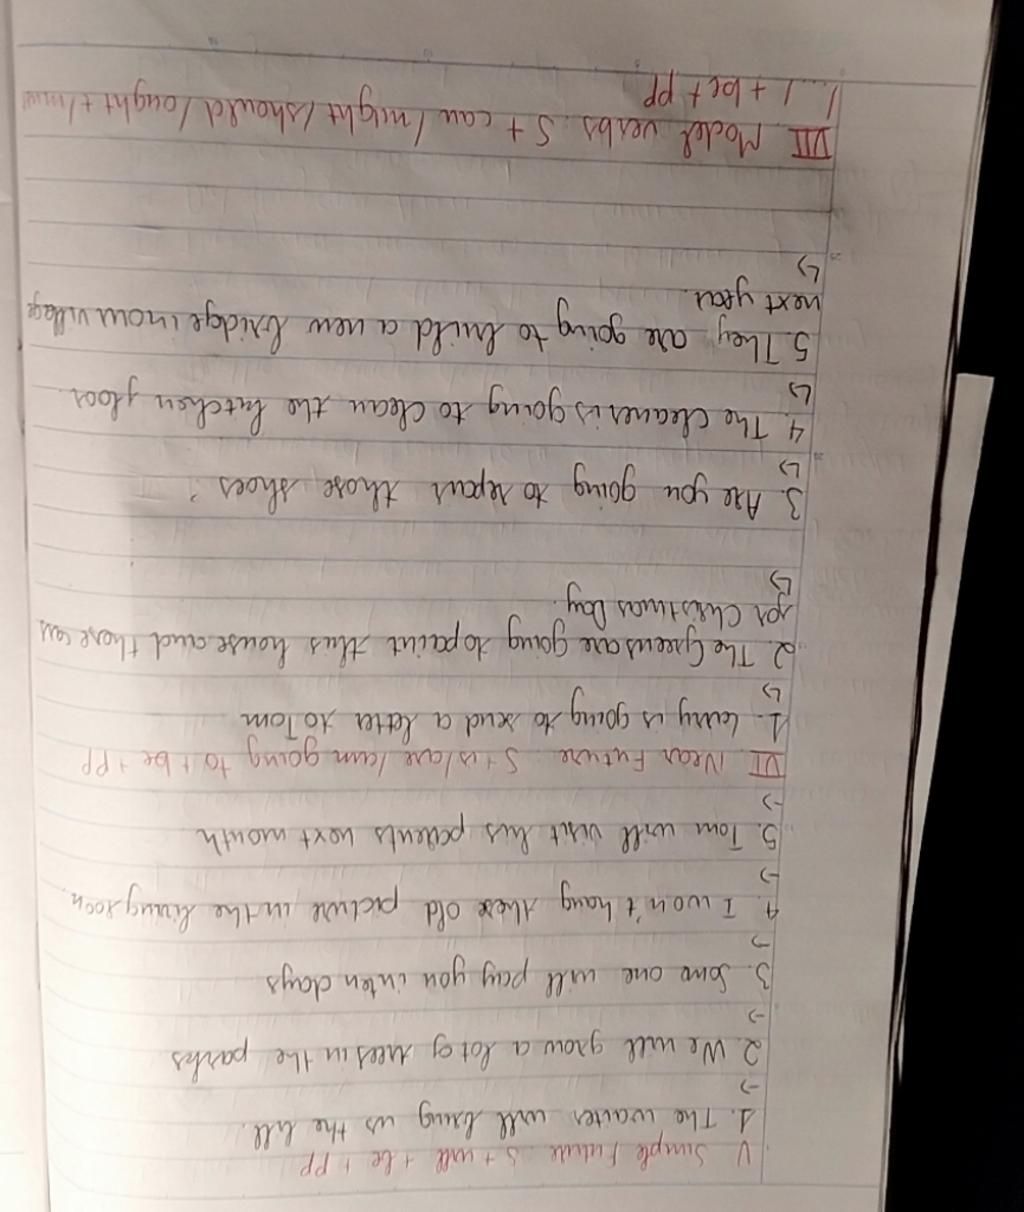 V Simple Future S + will + be + PP
1. The waiter will bring us the bill.
->
2. We will grow a lot of trees in the parks
->
3. Some one will pay you in ten days
->
4. I won't hang these old picture in the living room.
->
5. Tom will visit his parents next month
->
VI Near Future S + is/are/am going to + be + PP
1. Larry is going to send a letter to Tom
↳
2. The Greens are going to paint this house and these cars
for Christmas Day.
↳
3. Are you going to repair those shoes?
↳
4. The cleaner is going to clean the kitchen floor.
↳
5. They are going to build a new bridge in our village
next year.
↳
VII Model verbs S + can / might / should / ought +
+ be + pp
1.